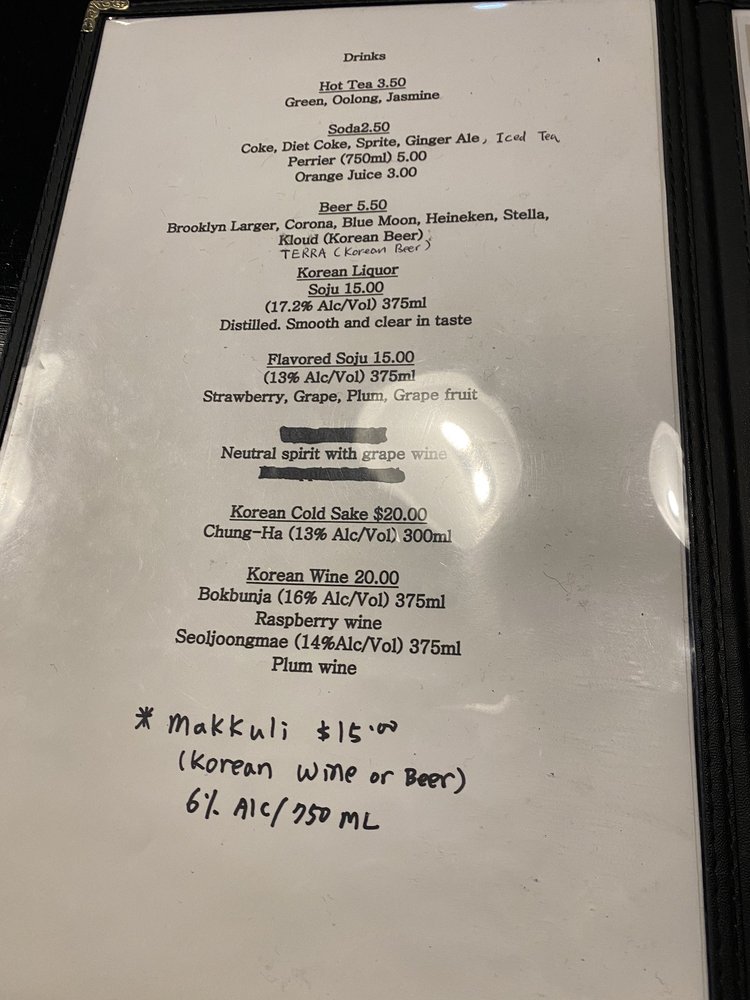 Drinks
Hot Tea 3.50
Green, Oolong, Jasmine
Soda2.50
Coke, Diet Coke, Sprite, Ginger Ale, Iced Tea
Perrier (750ml) 5.00
Orange Juice 3.00
Beer 5.50
Brooklyn Larger, Corona, Blue Moon, Heineken, Stella,
Kloud (Korean Beer),
TERRA (Korean Beer)
Korean Liquor
Soju 15.00
(17.2% Alc/Vol) 375ml
Distilled. Smooth and clear in taste
Flavored Soju 15.00
(13% Alc/Vol) 375ml
Strawberry, Grape, Plum, Grape fruit
Neutral spirit with grape wine
Korean Cold Sake $20.00
Chung-Ha (13% Alc/Vol) 300ml
Korean Wine 20.00
Bokbunja (16% Alc/Vol) 375ml
Raspberry wine
Seoljoongmae (14%Alc/Vol) 375ml
Plum wine
* Makkuli $15.00
(Korean Wine or Beer)
6% Alc/750 ML